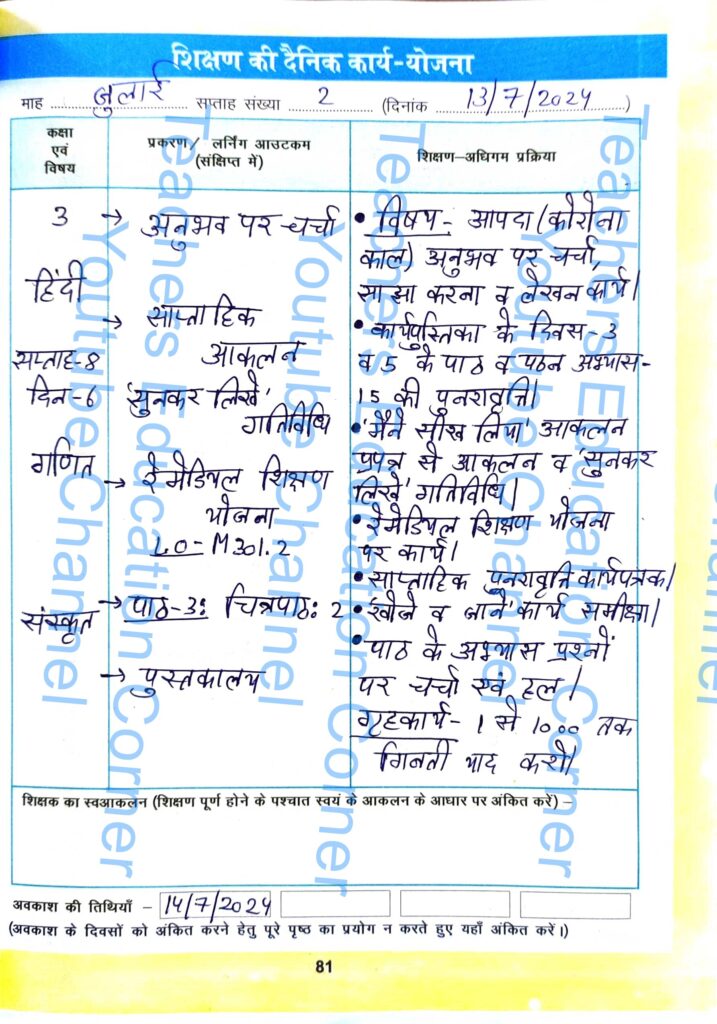 शिक्षण की दैनिक कार्य-योजना
माह जुलाई सप्ताह संख्या 2 (दिनांक 13/7/2024)
कक्षा एवं विषय
प्रकरण/ लर्निंग आउटकम (संक्षिप्त में)
शिक्षण-अधिगम प्रक्रिया
3
हिंदी
सप्ताह-8
दिन-6
गणित
संस्कृत
→ अनुभव पर चर्चा
→ साप्ताहिक
आकलन
'सुनकर लिखे'
गतिविधि
→ रेमेडियल शिक्षण
योजना
LO-M301.2
→ पाठ-3: चित्रपाठ: 2
→ पुस्तकालय
• विषय- आपदा (कोरोना
काल) अनुभव पर चर्चा,
साझा करना व लेखन कार्य।
• कार्यपुस्तिका के दिवस-3
व 5 के पाठ व पठन अभ्यास-
15 की पुनरावृत्ति।
• 'मैने सीख लिया' आकलन
प्रपत्र से आकलन व 'सुनकर
लिखे' गतिविधि।
• रेमेडियल शिक्षण योजना
पर कार्य।
• साप्ताहिक पुनरावृत्ति कार्यपत्रक।
• 'खोजे व जाने' कार्य समीक्षा।
• पाठ के अभ्यास प्रश्नों
पर चर्चा एवं हल।
गृहकार्य- 1 से 1000 तक
गिनती याद करो।
शिक्षक का स्वआकलन (शिक्षण पूर्ण होने के पश्चात स्वयं के आकलन के आधार पर अंकित करें) –
अवकाश की तिथियाँ – 14/7/2024
(अवकाश के दिवसों को अंकित करने हेतु पूरे पृष्ठ का प्रयोग न करते हुए यहाँ अंकित करें।)
81
Teachers Education Corner
Youtube Channel
Teachers Education Corner
Youtube Channel
Teachers Education Corner
Youtube Channel